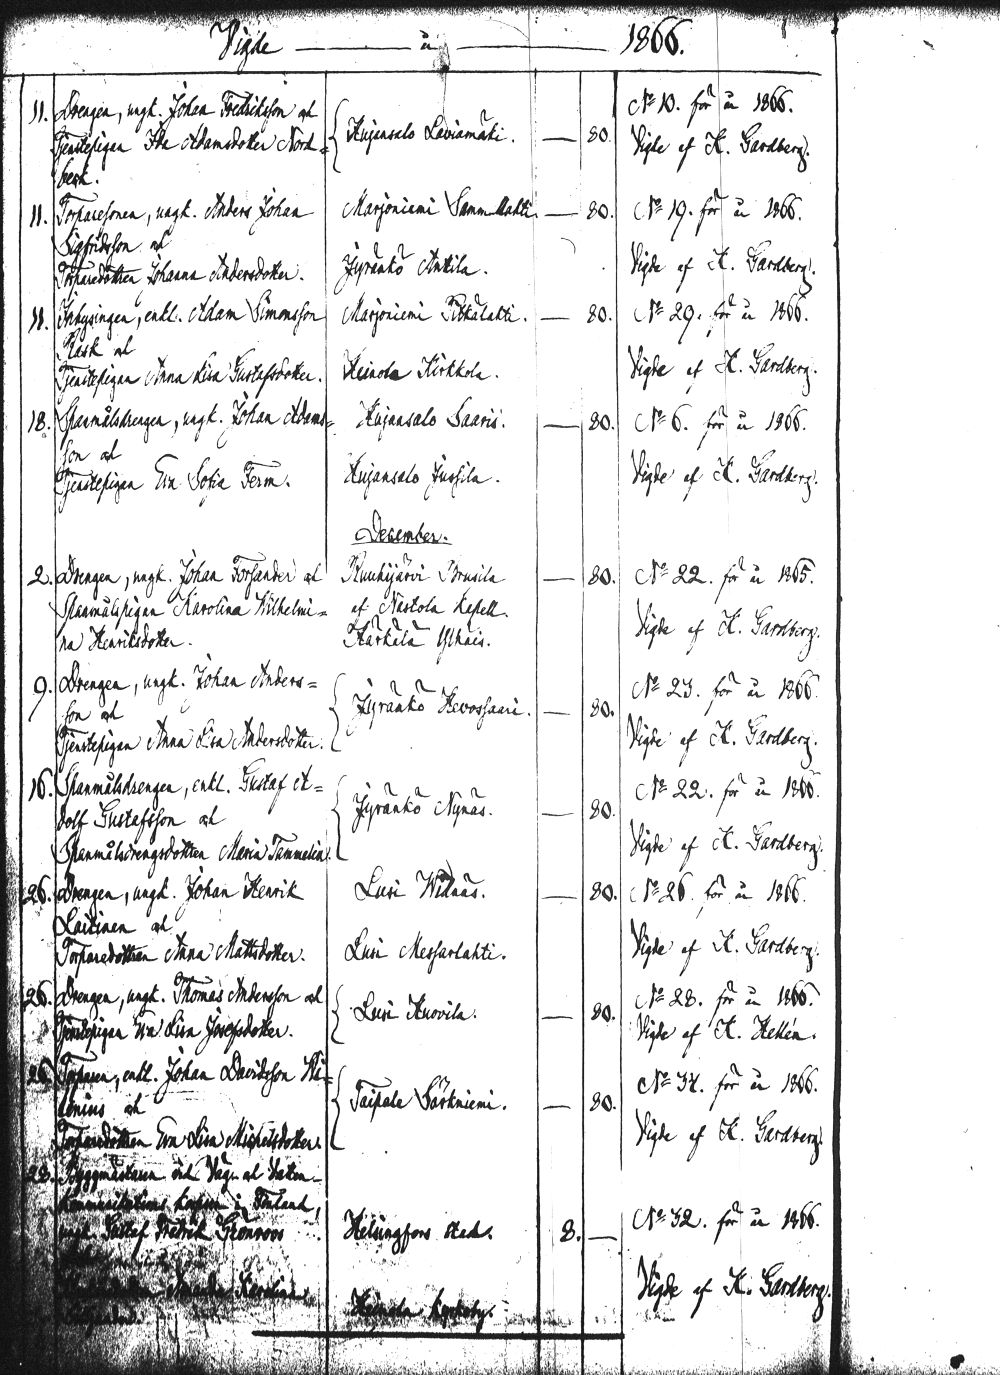 Vigde — år — 1866.
11. Drengen, ungk. Johan Fredriksson och
Tjenstepigan Ida Adamsdotter Nord=
berk.
Kujansalo Laviamäki. — 80.
No 10. för år 1866.
Vigde af K. Gardberg.
11. Torparesonen, ungk. Anders Johan
Sigfridsson och
Torparedottren Johanna Andersdotter.
Marjoniemi Sammallahti. — 80.
Jyränkö Anttila.
No 19. för år 1866.
Vigde af K. Gardberg.
11. Inhysingen, enkl. Adam Simonsson
Rask och
Tjenstepigan Anna Lisa Gustafsdotter.
Marjoniemi Pitkälahti. — 80.
Heinola Kirkkola.
No 29. för år 1866.
Vigde af K. Gardberg.
18. Spanmålsdrengen, ungk. Johan Adams=
son och
Tjenstepigan Eva Sofia Ferm.
Kujansalo Saaris. — 80.
Kujansalo Jussila.
No 6. för år 1866.
Vigde af K. Gardberg.
December.
2. Drengen, ungk. Johan Forsander och
Spanmålspigan Karolina Wilhelmi=
na Henriksdotter.
Ruuhijärvi Brusila — 80.
af Nastola Kapell.
Härkälä Ylhäis.
No 22. för år 1865.
Vigde af K. Gardberg.
9. Drengen, ungk. Johan Anders=
son och
Tjenstepigan Anna Lisa Andersdotter.
Jyränkö Hevossaari. — 80.
No 23. för år 1866.
Vigde af K. Gardberg.
16. Spanmålsdrengen, enkl. Gustaf A=
dolf Gustafsson och
Spanmålsdrengsdottren Maria Tammelin.
Jyränkö Nynäs. — 80.
No 22. för år 1866.
Vigde af K. Gardberg.
26. Drengen, ungk. Johan Henrik
Laitinen och
Torparedottran Anna Mattsdotter.
Lusi Widnäs. — 80.
Lusi Messarlahti.
No 26. för år 1866.
Vigde af K. Gardberg.
26. Drengen, ungk. Thomas Andersson och
Tjenstepigan Eva Lisa Josefsdotter.
Lusi Kuovila. — 80.
No 28. för år 1866.
Vigde af K. Hellén.
26. Torparen, enkl. Johan Davidsson He=
lenius och
Torparedottren Eva Lisa Michelsdotter.
Taipale Särkniemi. — 80.
No 34. för år 1866.
Vigde af K. Gardberg.
28. Byggmästaren vid Väg- och Vatten-
kommunikations korpsen i Finland,
ungk. Gustaf Fredrik Grönroos
Amanda Karolina
Helsingfors stad. 8. —
Heinola kyrkoby.
No 32. för år 1866.
Vigde af K. Gardberg.